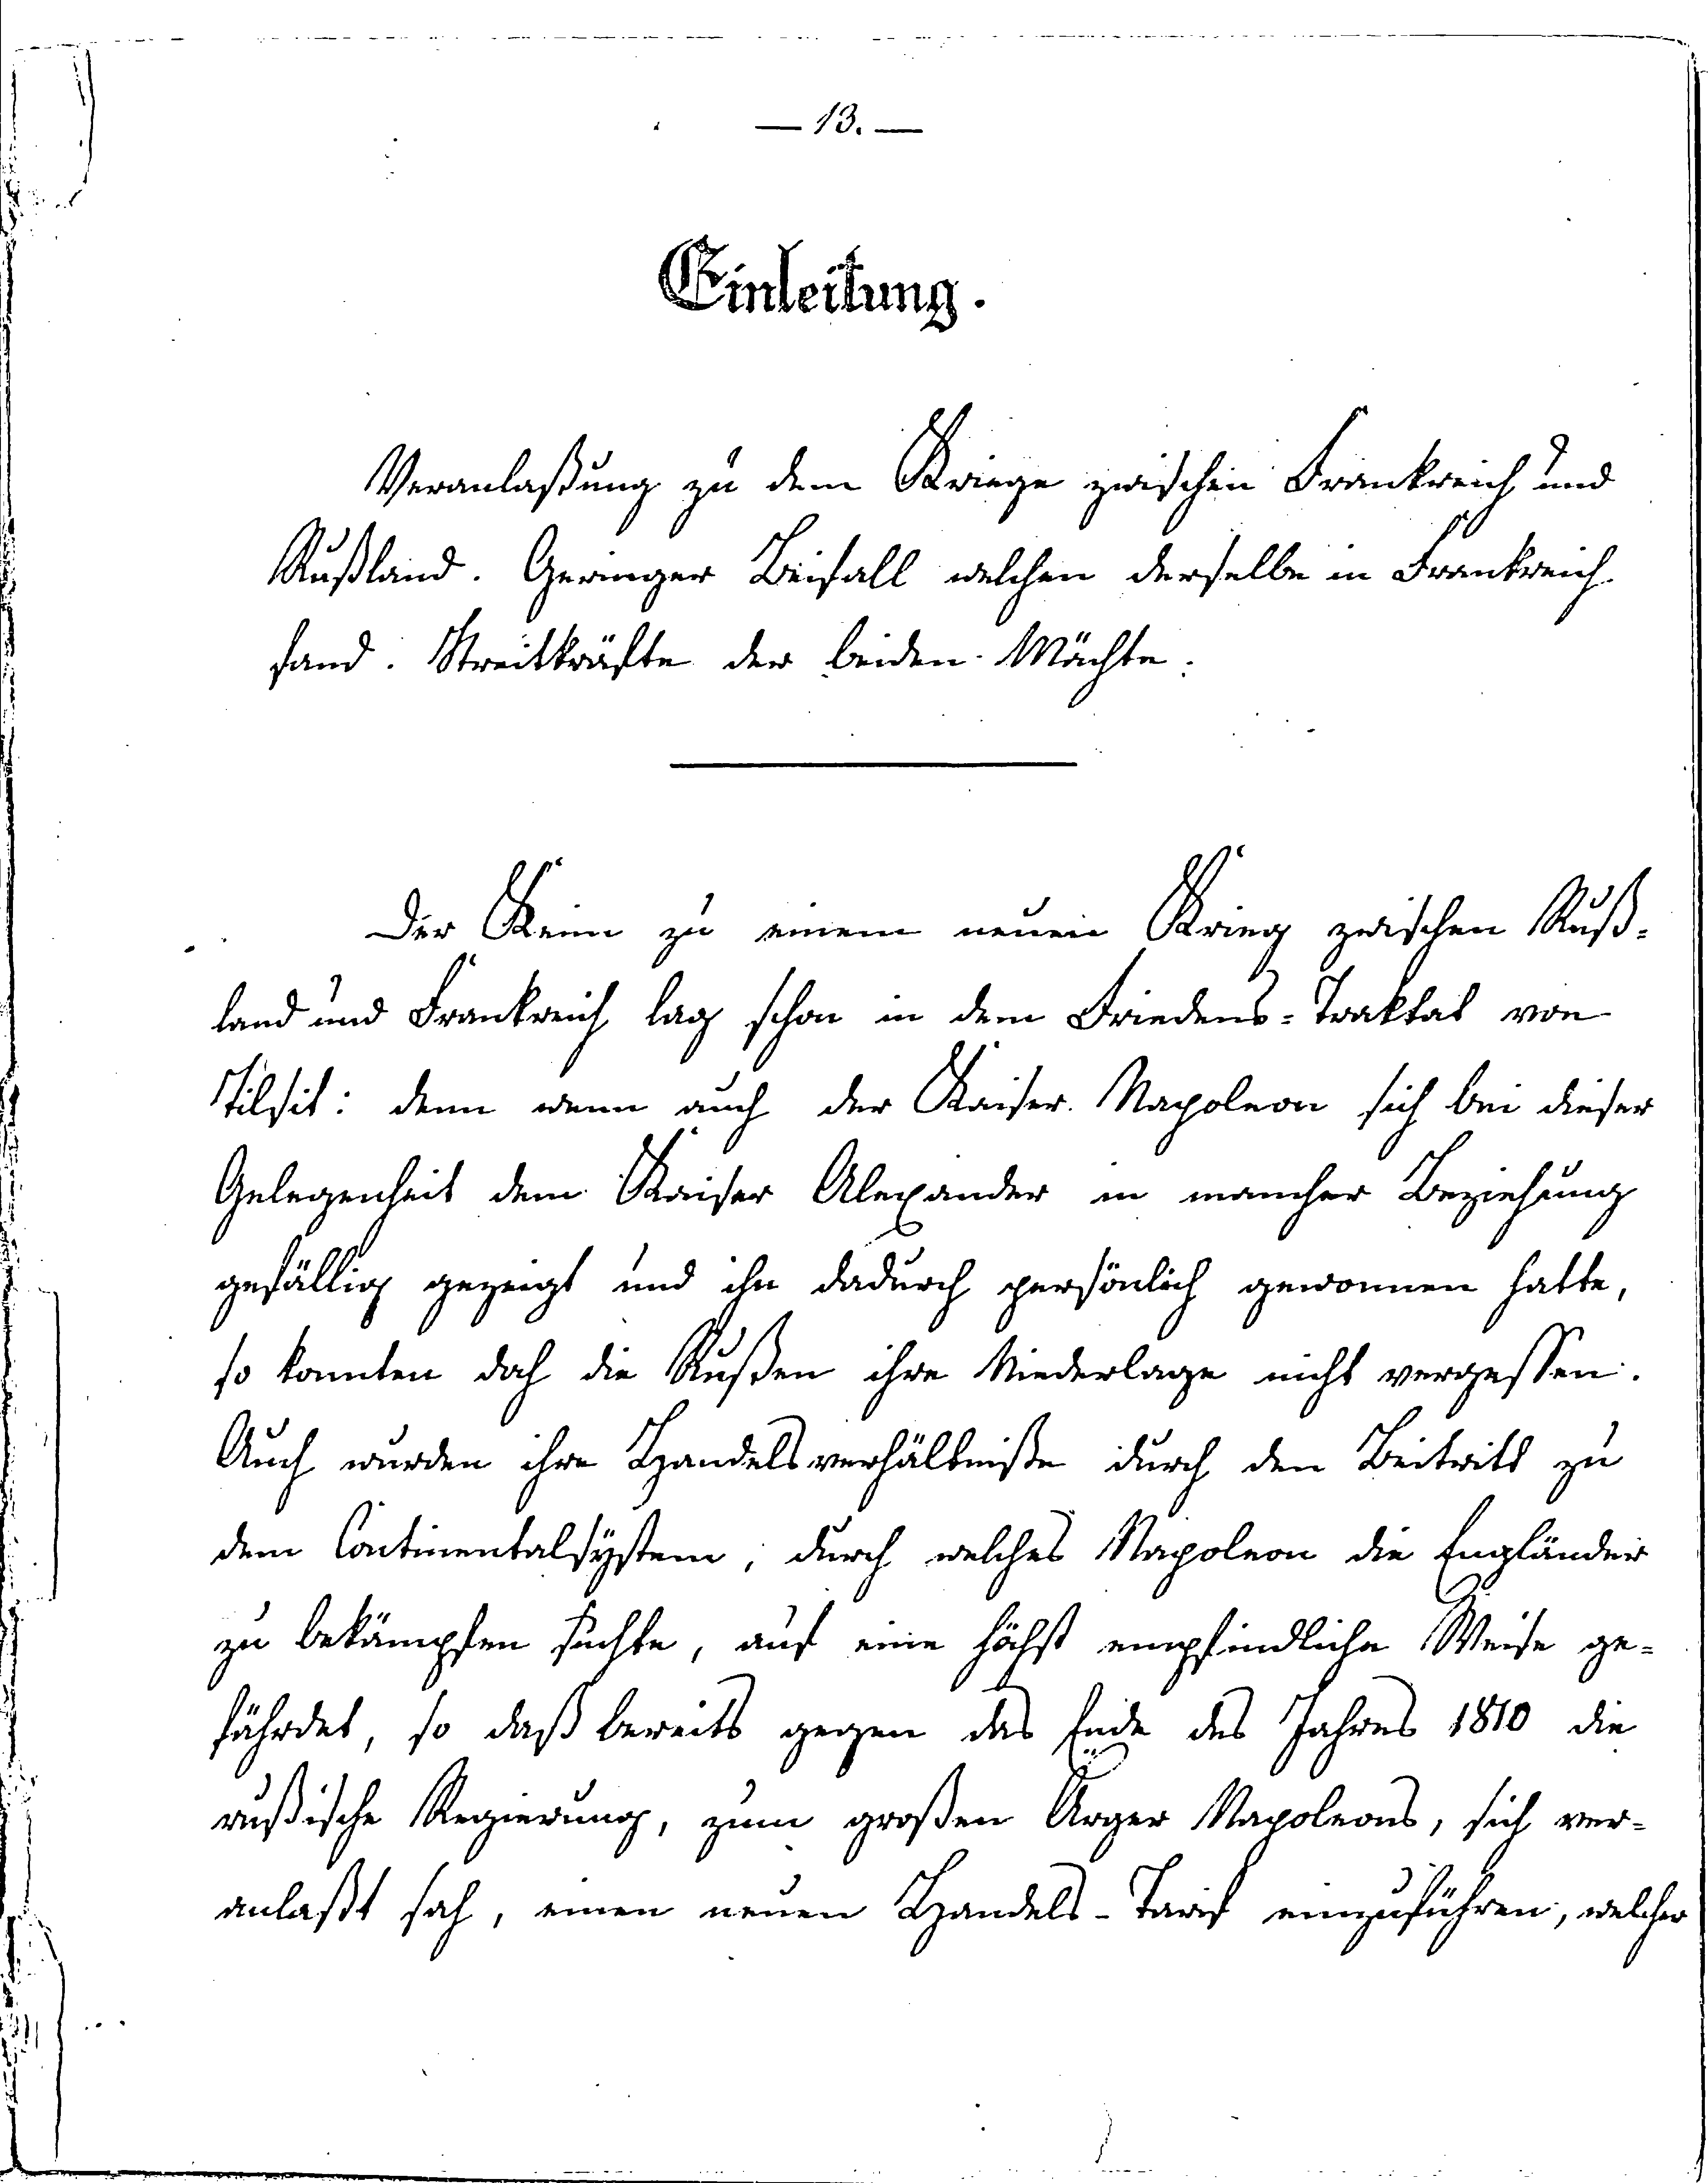 — 13. —
Einleitung.
Veranlaßung zu dem Kriege zwischen Frankreich und
Rußland. Geringer Beifall welchen derselbe in Frankreich
fand. Streitkräfte der beiden Mächte.
Der Keim zu einem neuen Krieg zwischen Ruß-
land und Frankreich lag schon in dem Friedens-Traktat von
Tilsit: denn wenn auch der Kaiser Napoleon sich bei dieser
Gelegenheit dem Kaiser Alexander in mancher Beziehung
gefällig gezeigt und ihn dadurch persönlich gewonnen hatte,
so konnten doch die Rußen ihre Niederlage nicht vergessen.
Auch wurden ihre Handelsverhältniße durch den Beitritt zu
dem Continentalsÿstem, durch welches Napoleon die Engländer
zu bekämpfen suchte, auf eine höchst empfindliche Weise ge-
fährdet, so daß bereits gegen das Ende des Jahres 1810 die
rußische Regierung, zum großen Ärger Napoleons, sich ver-
anlaßt sah, einen neuen Handels-Tarif einzuführen, welcher